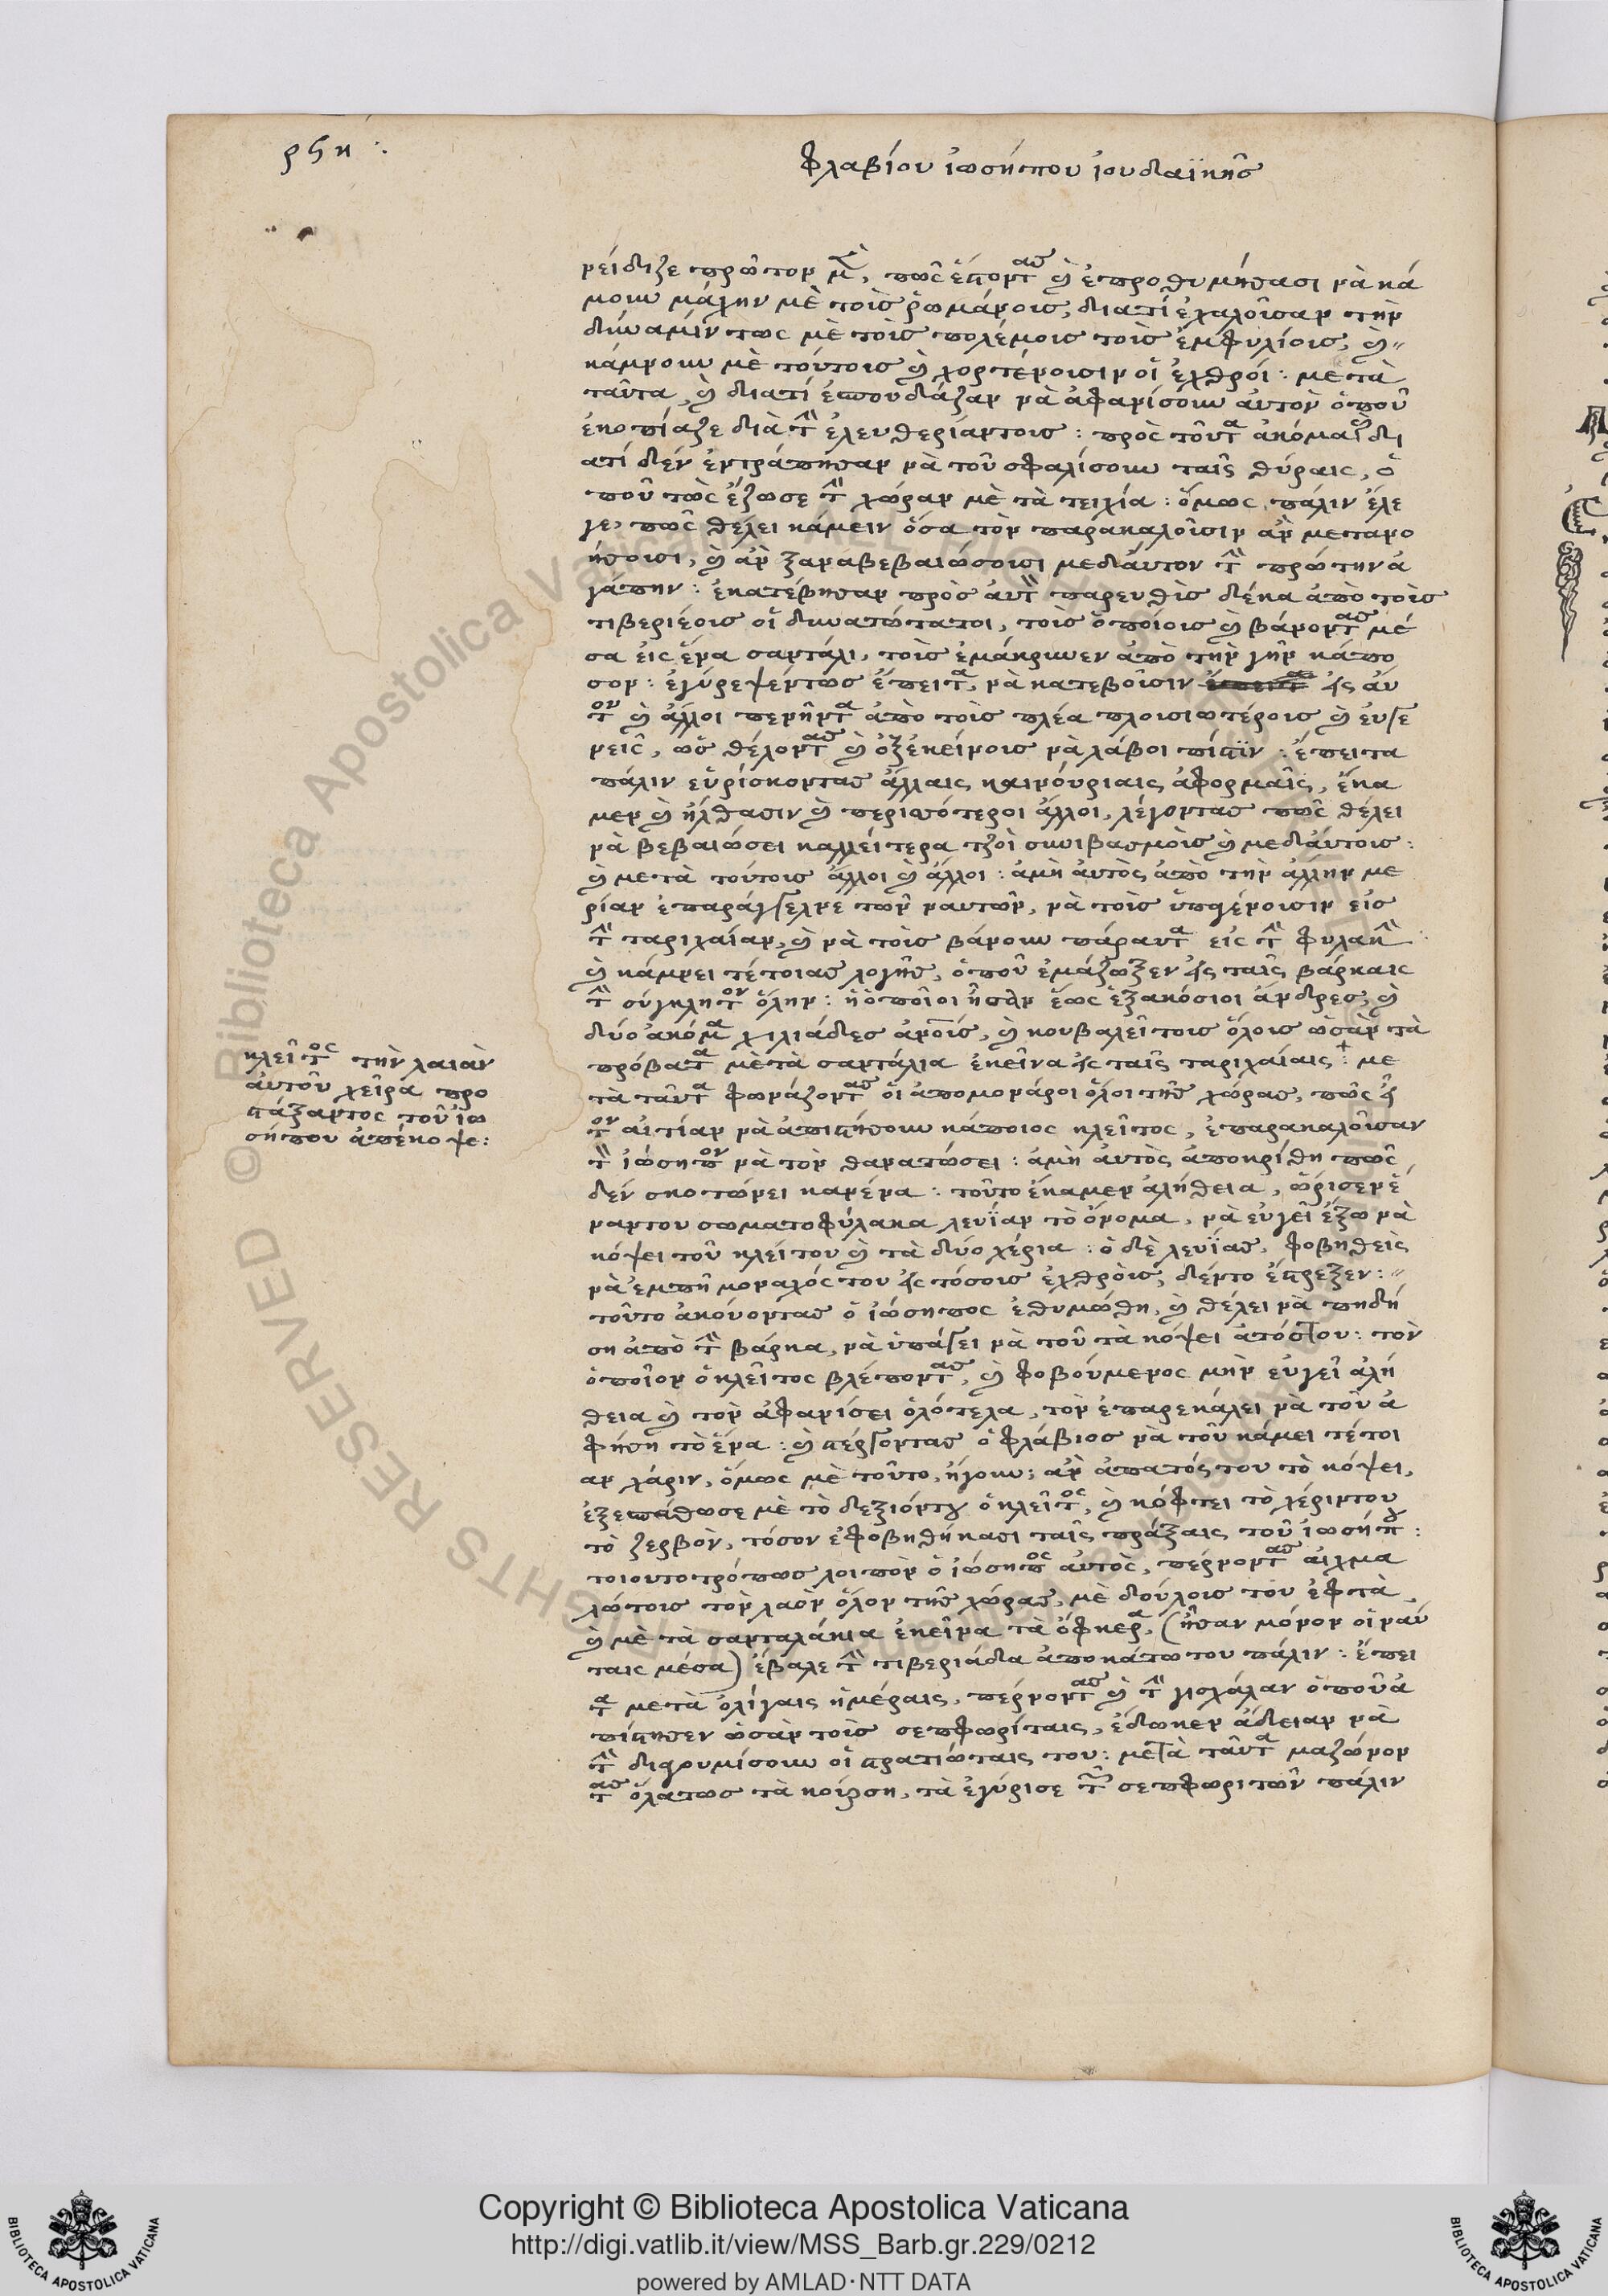 ρϟη:
Φλαβίου ἰωσήπου ἰουδαϊκῆς
νείδιζε πρῶτον μὲ, πῶς ἔστοντας καὶ ἐπροθυμήθασι νὰ κά
μουν μάχην μὲ τοὶς ῥωμάνοις, διατί ἐχαλοῖσαν τὴν
δύναμίν τως μὲ τοὶς πολέμοις τοὶς ἐμφυλίοις, καὶ
κάμνουν μὲ τούτοις καὶ χορτένοισιν οἱ ἐχθροί: μετὰ
ταῦτα, καὶ διατί ἐσπουδάζαν νὰ ἀφανίσουν αὐτὸν ὁποῦ
ἐκοπίαζε διὰ τὴν ἐλευθερίαντοις: πρὸς τοῦτα ἀκόμα δι
ατί δὲν ἐντράπησαν νὰ τοῦ σφαλίσουν ταῖς θύραις, ὁ
ποῦ τῶς ἔζωσε τὴν χώραν μὲ τὰ τειχία: ὅμως πάλιν ἔλε
γε, πῶς θέλει κάμειν ὅσα τὸν παρακαλοῖσιν ἂν μετανο
ήσοισι, καὶ ἂν ξαναβεβαιώσοισι μεδαύτον τὴν πρώτην ἀ
γάπην: ἐκατέβησαν πρὸς αὐτὴν παρευθὶς δέκα ἀπὸ τοὶς
τιβεριέοις οἱ δυνατώτατοι, τοὶς ὁποίοις καὶ βάνοντας μέ
σα εἰς ἕνα σαντάλι, τοὶς ἐμάκρυνεν ἀπὸ τὴν γῆν κάπο
σον: ἐγύρεψεντως ἔπειτα, νὰ κατεβοῖσιν εἰς αὐ
τὸν καὶ ἄλλοι πενῆντα ἀπὸ τοὶς πλέα πλοισιωτέροις καὶ εὐγε
νεῖς, ὡς θέλοντας καὶ ὀξεκείνοις νὰ λάβοι πίστιν: ἔπειτα
πάλιν εὑρίσκοντας ἄλλαις καινούριαις ἀφορμαῖς, ἔκα
μεν καὶ ἤλθασιν καὶ περισσότεροι ἄλλοι, λέγοντας πῶς θέλει
νὰ βεβαιώσει καλλείτερα τζοὶ συνιβασμοὶς καὶ μεδαύτοις:
καὶ μετὰ τούτοις ἄλλοι καὶ ἄλλοι: ἀμὴ αὐτὸς ἀπὸ τὴν ἄλλην με
ρίαν ἐπαράγγελνε τῶν ναυτῶν, νὰ τοὶς ὑπαγένοισιν εἰς
τὴν ταριχαίαν, καὶ νὰ τοὶς βάνουν πάραυτα εἰς τὴν φυλακὴν
καὶ κάμνει τέτοιας λογῆς, ὁποῦ ἐμάζωξεν εἰς ταῖς βάρκαις
τὴν σύγκλητον ὅλην: ἡ ὁποῖοι ἦσαν ἕως ἑξακόσιοι ἄνδρες, καὶ
δύο ἀκόμα χιλιάδες ἀνοις, καὶ κουβαλεῖ τοις ὅλοις ὡσὰν τὰ
πρόβατα μὲ τὰ σαντάλια ἐκεῖνα εἰς ταῖς ταριχαίαις: με
τὰ ταῦτα φωνάζοντας οἱ ἀπομονάροι ὅλοι τῆς χώρας, πῶς
τὸν αἰτίαν νὰ ἀπιστήσουν κάποιος κλεῖτος, ἐπαρακαλοῖσαν
τὸν ἰώσηπον νὰ τὸν θανατώσει: ἀμὴ αὐτὸς ἀποκρίθη πῶς
δὲν σκοτώνει κανένα: τοῦτο ἔκαμεν ἀλήθεια, ὥρισεν ἕ
ναντου σωματοφύλακα λευΐαν τὸ ὄνομα, νὰ εὐγεῖ ἔξω νὰ
κόψει τοῦ κλείτου καὶ τὰ δύο χέρια: ὁ δὲ λευΐας, φοβηθεὶς
νὰ ἐμπῆ μοναχός του εἰς τόσοις ἐχθροὶς, δέντο ἔστρεξεν:
τοῦτο ἀκούοντας ὁ ἰώσηπος ἐθυμώθη, καὶ θέλει νὰ πηδή
ση ἀπὸ τὴν βάρκα, νὰ ὑπάγει νὰ τοῦ τὰ κόψει ἀτόςτου: τὸν
ὁποῖον ὁ κλεῖτος βλέποντας, καὶ φοβούμενος μὴν εὐγεῖ ἀλή
θεια καὶ τὸν ἀφανίσει ὁλότελα, τὸν ἐπαρεκάλει νὰ τοῦ ἀ
φήση τὸ ἕνα: καὶ στέργοντας ὁ φλάβιος νὰ τοῦ κάμει τέτοι
αν χάριν, ὅμως μὲ τοῦτο, ἤγουν; ἂν ἀπατός του τὸ κόψει,
ἐξεσπάθωσε μὲ τὸ δεξιόντου ὁ κλεῖτος, καὶ κόφτει τὸ χέριντου
τὸ ζερβὸν, τόσον ἐφοβηθήκασι ταῖς πράξαις τοῦ ἰωσήπου:
τοιουτοτρόπως λοιπὸν ὁ ἰώσηπος αὐτὸς, πέρνοντας αἰχμα
λώτοις τὸν λαὸν ὅλον τῆς χώρας, μὲ δούλοις του ἑφτὰ,
καὶ μὲ τὰ σανταλάκια ἐκεῖνα τὰ ὄφκερα, (ἦσαν μόνον οἱ ναύ
ταις μέσα) ἔβαλε τὴν τιβεριάδα ἀποκάτω του πάλιν: ἔπει
τα μετὰ ὀλίγαις ἡμέραις, πέρνοντας καὶ τὴν γισχάλαν ὁποῦ ἀ
πίστησεν ὡσὰν τοὶς σεπφωρίταις, ἔδωκεν ἄδειαν νὰ
τὴν διαγουμίσουν οἱ στρατιώταις του: μετὰ ταῦτα μαζώνον
τας ὅλατως τὰ κούρση, τὰ ἐγύρισε τῶν σεπφωριτῶν πάλιν
κλεῖτος τὴν λαιὰν
αὐτοῦ χεῖρα προ
στάξαντος τοῦ ἰω
σήπου ἀπέκοψε:
© Biblioteca Apostolica Vaticana
RIGHTS RESERVED
Copyright © Biblioteca Apostolica Vaticana
http://digi.vatlib.it/view/MSS_Barb.gr.229/0212
powered by AMLAD·NTT DATA
BIBLIOTECA APOSTOLICA VATICANA
BIBLIOTECA APOSTOLICA VATICANA